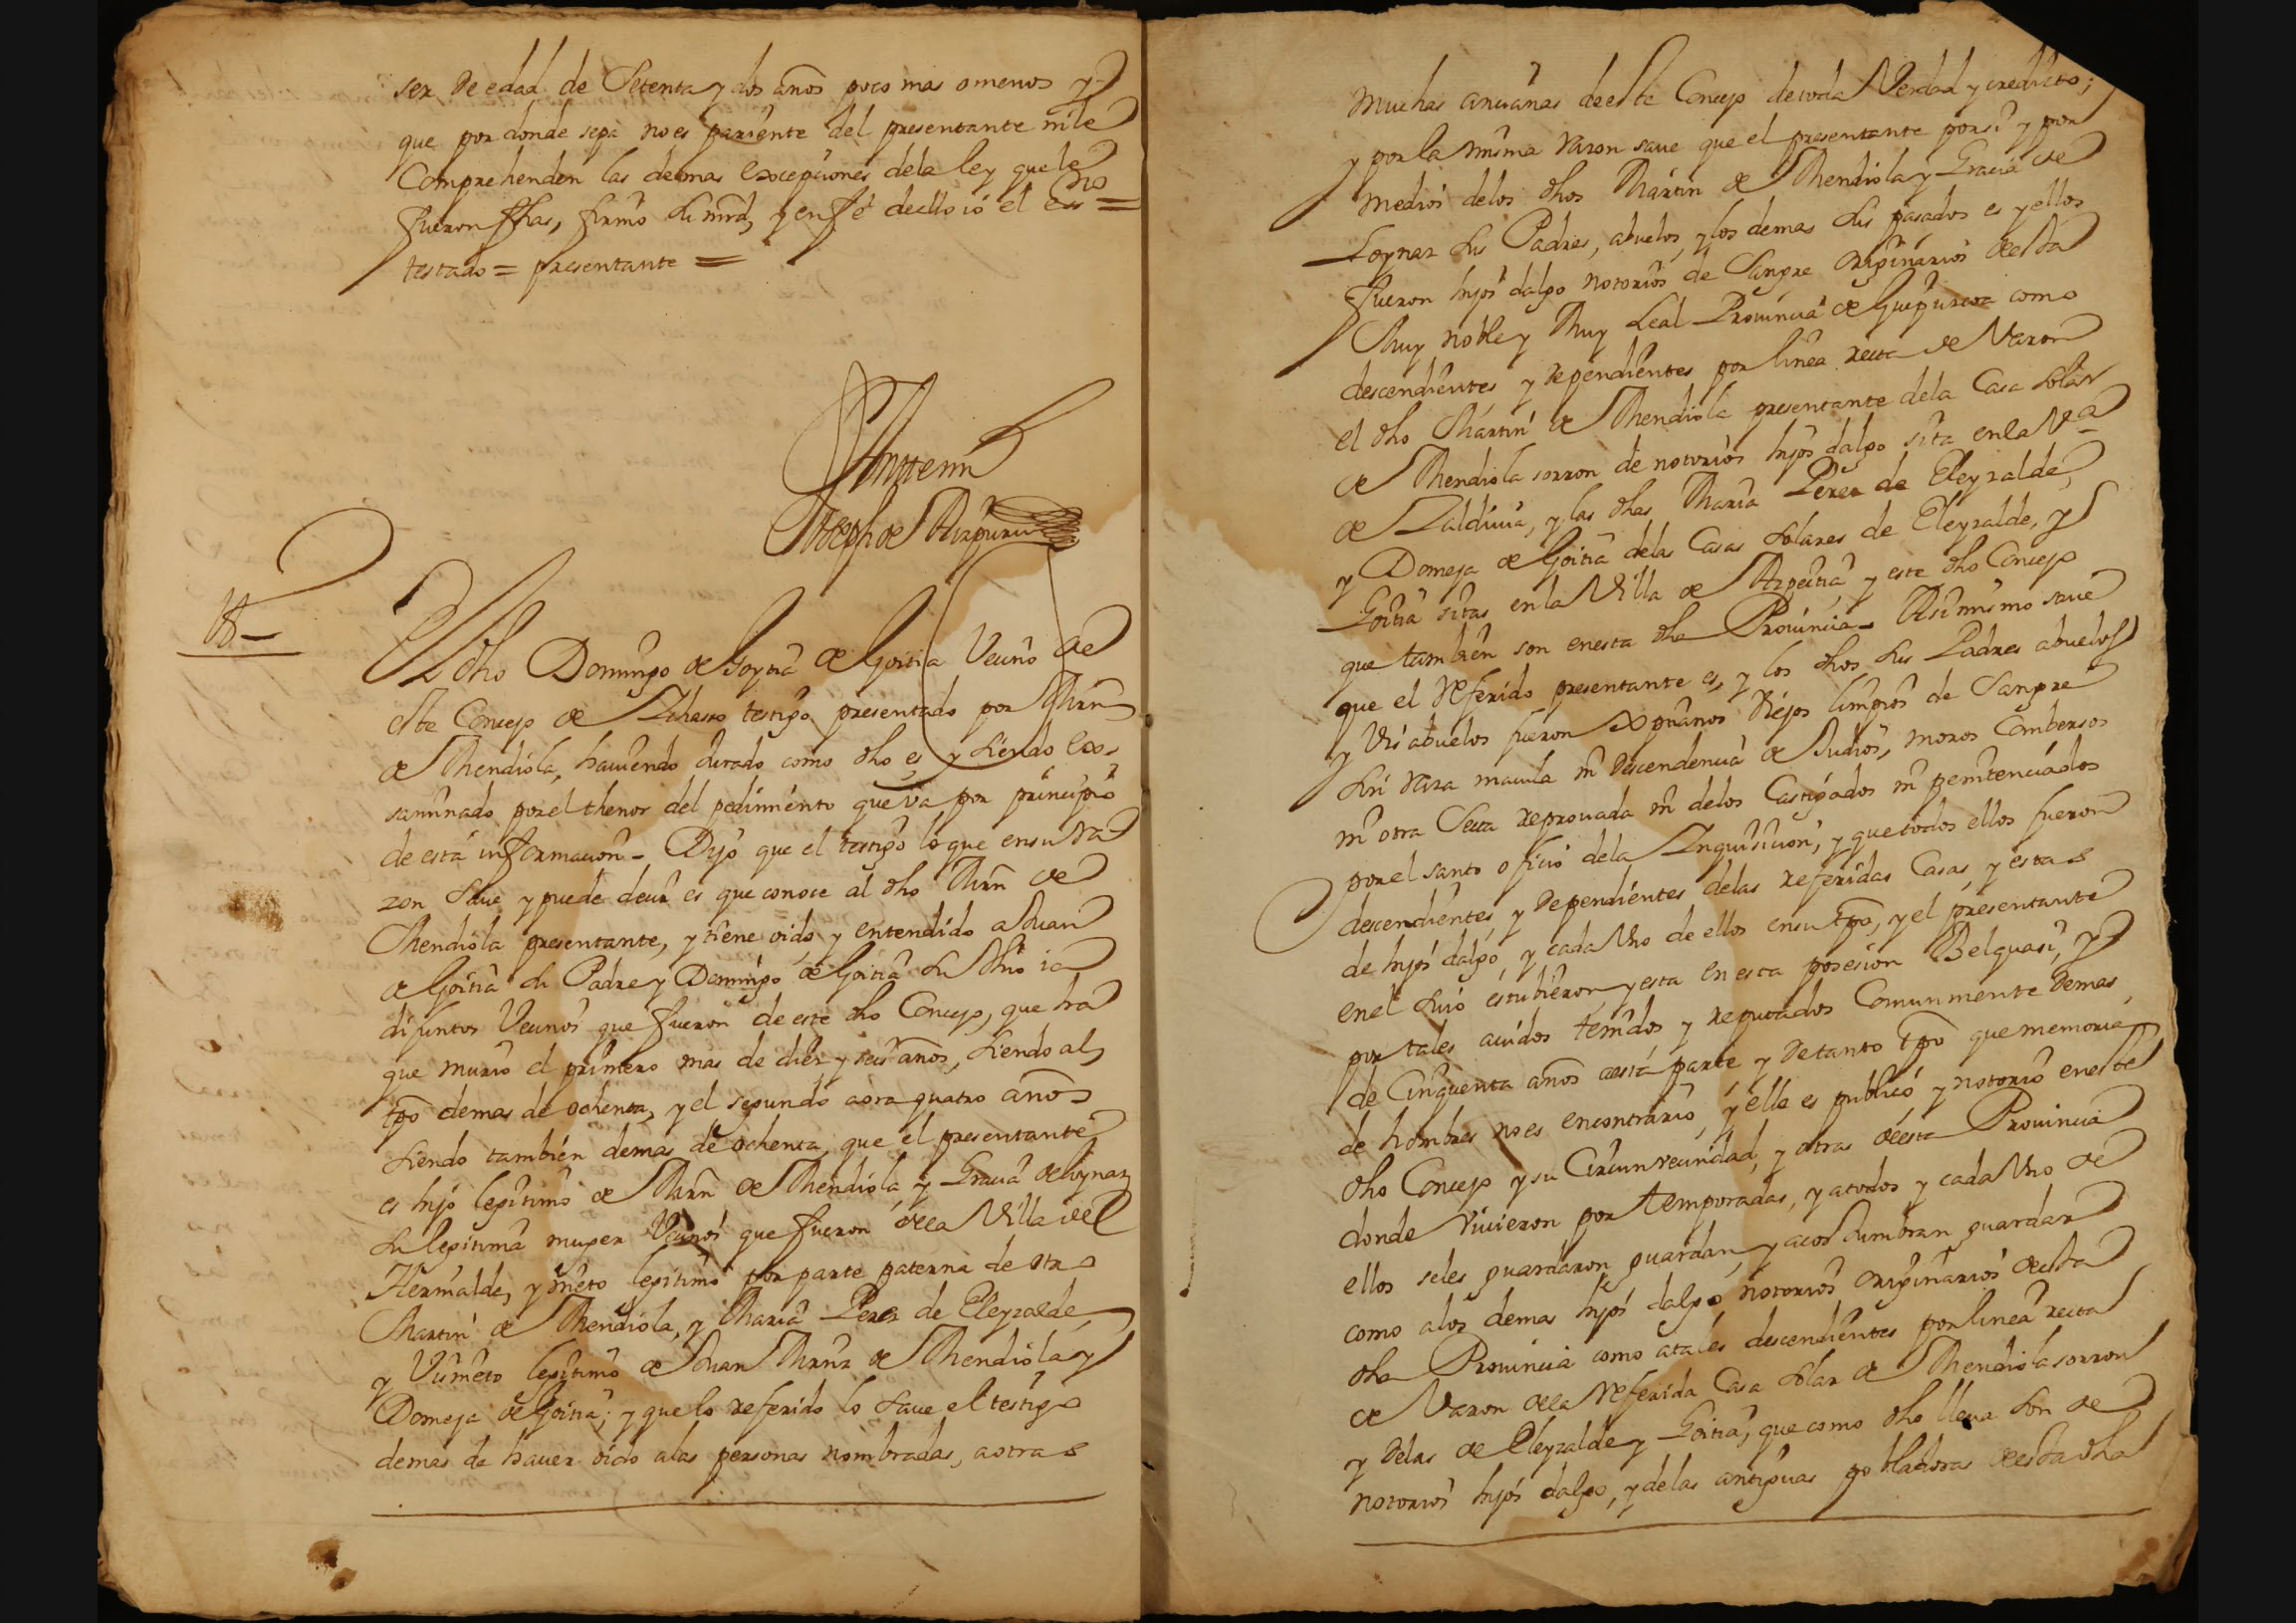 ser de edad de Setenta y dos años poco mas o menos y
que por donde sepa no es pariente del presentante ni le
Comprehenden las demas excepciones dela ley que le
fueron fhas, firmo su mrd, y enfé de ello io el ess no =
testado = presentante =
Antemi
Joseph de Aizpuru
tt-
El dho Domingo de Goitia Vecino de
este Concejo de testigo presentado por Mrn
de Mendiola, hauiendo Jurado como dho es y siendo exs-
saminado por el thenor del pedimiento que va por principio
de está informacion - Dijo que el testigo lo que en su Ra-
zon saue y puede decir es que conoce al dho Mrn de
Mendiola presentante, y tiene oido y entendido a Juan
de Goitia su Padre y Domingo de Goitia su
difuntos Vecinos que fueron de este dho Concejo, que ha
que murio el primero mas de diez y seis años, siendo al
tpo demas de ochenta, y el segundo aora quatro años
siendo también demas de ochenta, que el presentante
es hijo legitimo de Mrn de Mendiola y Gracia de loynaz
su legitima muger Vecinos que fueron dela Villa de
Hernialde, y nieto legitimo por parte paterna de otro
Martin de Mendiola, y Maria Perez de Eleyzalde,
y Visnieto legitimo de Juan Mrnz de Mendiola y
Domeja de Goitia; y que lo referido lo saue el testigo
demás de hauer oido alas personas nombradas, aotras
muchas ancianas de este Concejo de toda Verdad y credito;
y por la misma Razon saue que el presentante por si y por
medio delos dhos Martin de Mendiola y Gracia de
Loynaz sus Padres, abuelos, y los demas sus pasados es y ellos
fueron hijos dalgo notorios de Sangre originarios de esta
Muy noble y Muy Leal Prouincia de Guipuzcoa como
descendientes y dependientes por linea recta de Varon
el dho Martin de Mendiola presentante dela Casa solar
de Mendiola sorron de notorios hijos dalgo sita en la Va
de Zaldiuia, y las dhas Maria Perez de Eleyzalde,
y Domeja de Goitia delas Casas solares de Eleyzalde, y
Goitia sitas en la Villa de Azpeitia y este dho Concejo
que también son en esta dha Prouincia - Asimismo saue
que el Referido presentante es, y los dhos sus Padres abuelos
y Visabuelos fueron Xpianos Viejos limpios de Sangre
sin Raza macula ni descendencia de Judios, moros Combersos
ni otra Secta reprouada ni delos Castigados ni penitenciados
por el santo oficio dela Inquisicion, y que todos ellos fueron
descendientes, y dependientes delas referidas Casas, y estas
de hijos dalgo, y cada Vno de ellos en su tpo, y el presentante
en el suio estubieron y esta en esta posesion Velquasi, y
por tales auidos tenidos, y reputados Comunmente demas
de Cinquenta años aesta parte y de tanto tpo que memoria
de hombres no es encontrario, y ello es publico y notorio en este
dho Concejo y su Circunvecindad, y otras de esta Prouincia
donde viuieron por temporadas, y atodos y cada Vno de
ellos seles guardaron guardan, y acostumbran guardar
como alos demas hijos dalgo notorios originarios de esta
dha Prouincia como atales descendientes por linea recta
de Varon dela Referida Casa solar de Mendiola sorron
y delas de Eleyzalde y Goitia, que como dho lleua son de
notorios hijos dalgo, y delas antiguas pobladoras de esta dha